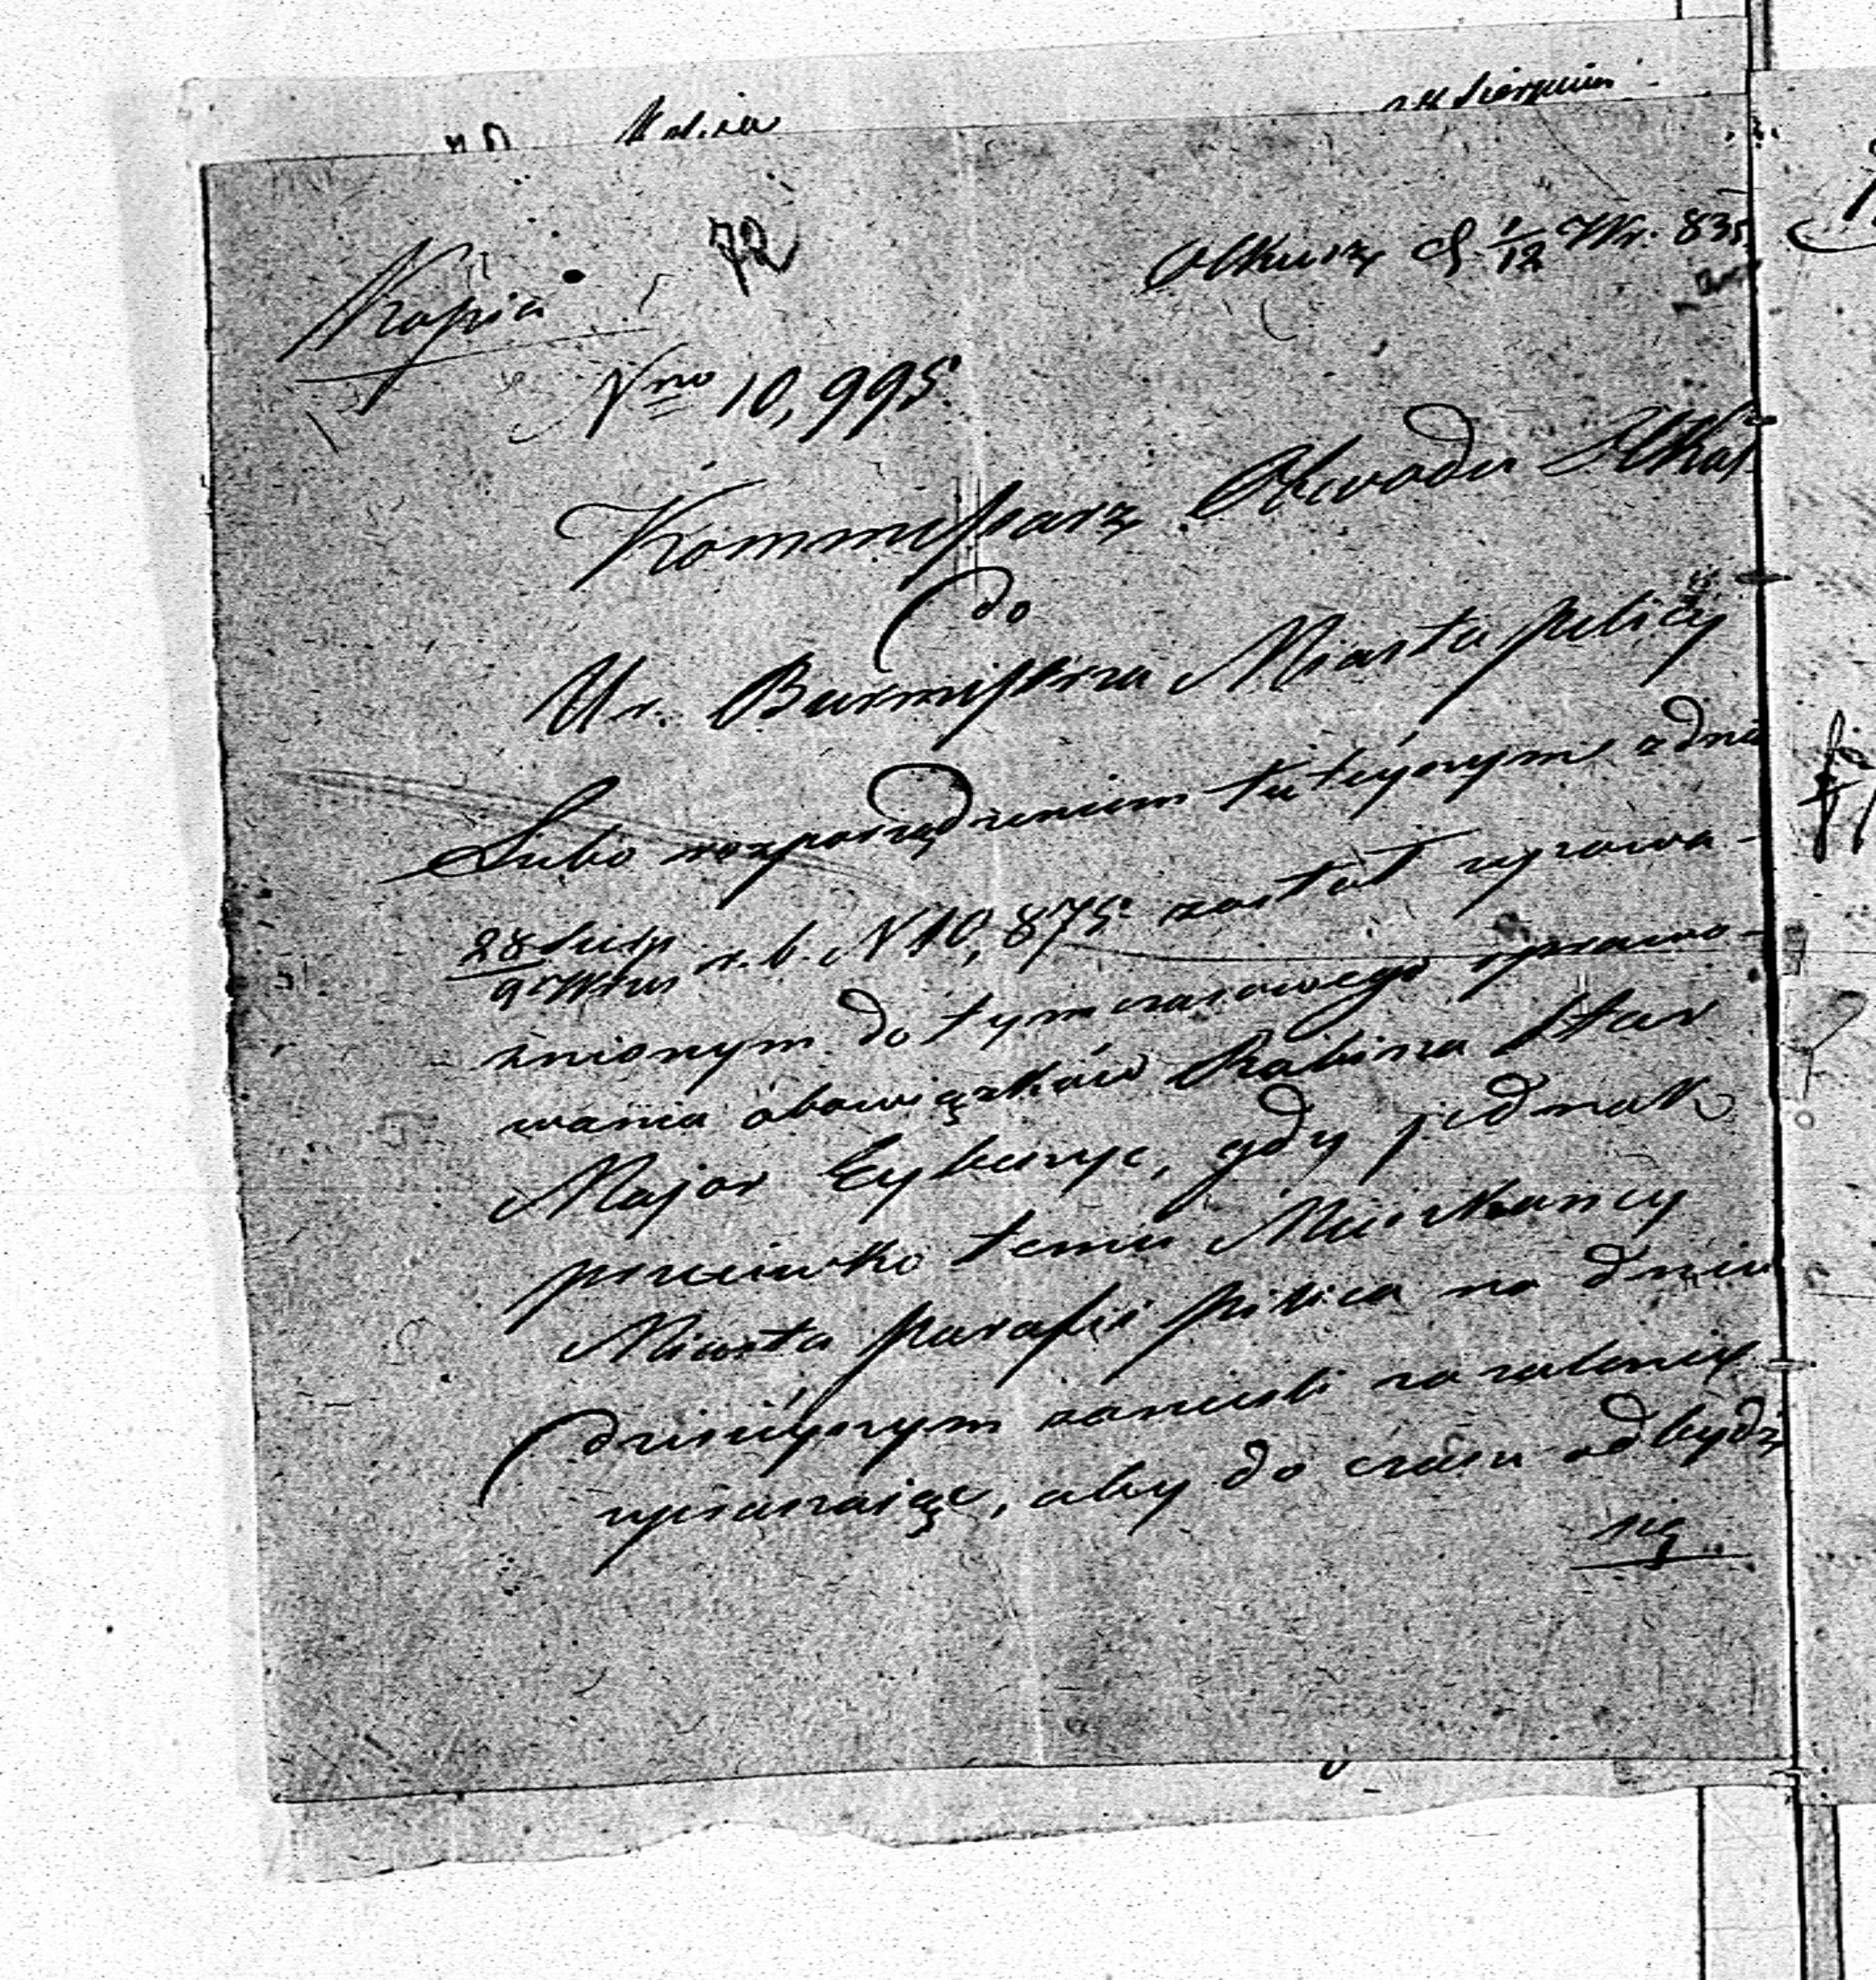 72
Kopia
Olkusz d. 1/12 Wr. 835
Nro 10,995
Kommissarz Obwodu Olkus
do
Ur. Burmistrza Miasta Pilicy
Lubo rozporządzeniem tuteyszym z dnia
28 Sierp / 9 Wrzes r. b. N 10,875 został upowa-
żnionym do tymczasowego sprawo-
wania obowiązków Rabina Star
Major Eybuszyc, gdy jednak
przeciwko temu Mieszkańcy
Miasta Parafii Pilica na dniu
dzisieyszym zanieśli zażalenie
upraszaiąc, aby do czasu odbydź